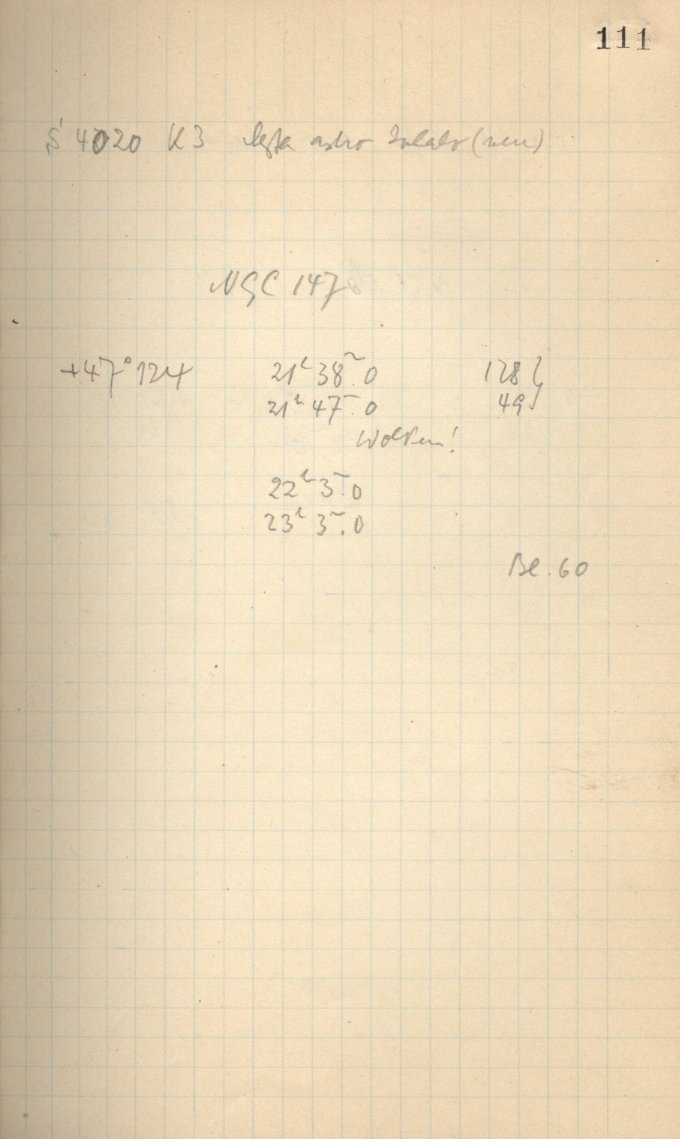 111
S 4020 K3 Agfa astro (neu)
NGC 147
+47° 124 21h 38m.0 128
21h 47m.0 49
Wolken!
22h 3m.0
23h 3m.0
Bl. 60